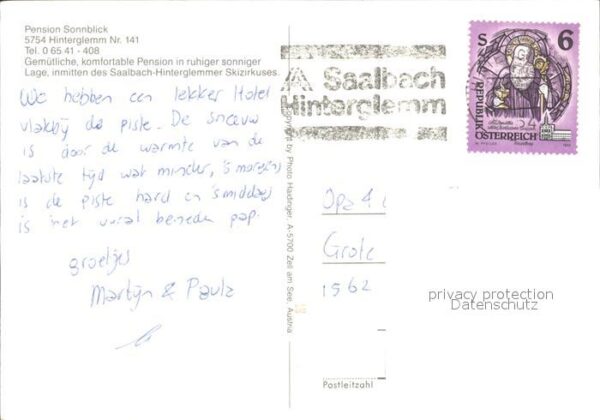 Pension Sonnblick
5754 Hinterglemm Nr. 141
Tel. 0 65 41 - 408
Gemütliche, komfortable Pension in ruhiger sonniger
Lage, inmitten des Saalbach-Hinterglemmer Skizirkuses.
We hebben een lekker Hotel
vlakbij de piste. De sneeuw
is door de warmte van de
laatste tijd wat minder, 's morgens
is de piste hard en 's middags
is het vooral beneden pap.
groetjes
Martijn & Paula
Copyright by Photo Haidinger, A-5700 Zell am See, Austria
Saalbach
Hinterglemm
S 6
REPUBLIK
ÖSTERREICH
Opa &
Grote
1962
privacy protection
Datenschutz
Postleitzahl